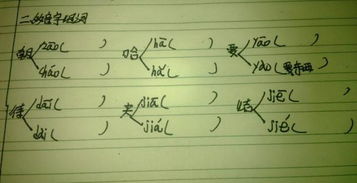 二、多音字组词
朝 zhāo( ) 哈 hā( ) 要 yāo( )
cháo( ) hǎ( ) yào(要东西)
待 dāi( ) 夹 jiā( ) 结 jiē( )
dài( ) jiá( ) jié( )